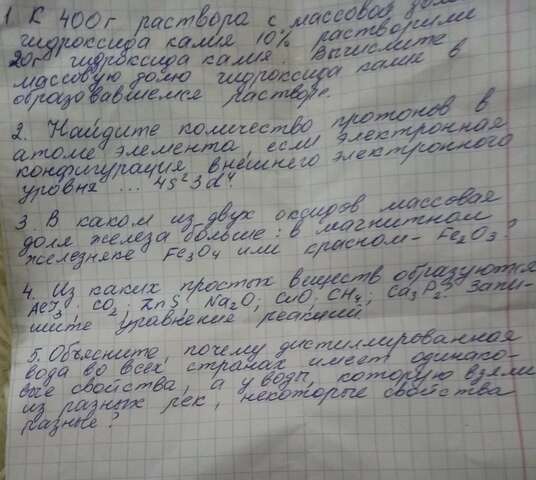 1. К 400 г раствора с массовой долей
гидроксида калия 10% растворили
20 г гидроксида калия. Вычислите
массовую долю гидроксида калия в
образовавшемся растворе.
2. Найдите количество протонов в
атоме элемента, если электронная
конфигурация внешнего электронного
уровня ... 4s²3d⁴.
3. В каком из двух оксидов массовая
доля железа больше: в магнитном
железняке Fe₃O₄ или красном - Fe₂O₃?
4. Из каких простых веществ образуются
AlI₃; CO₂; ZnS; Na₂O; CuO; CH₄; Ca₃P₂? Запи-
шите уравнение реакций
5. Объясните, почему дистиллированная
вода во всех странах имеет одинако-
вые свойства, а у воды, которую взяли
из разных рек, некоторые свойства
разные?